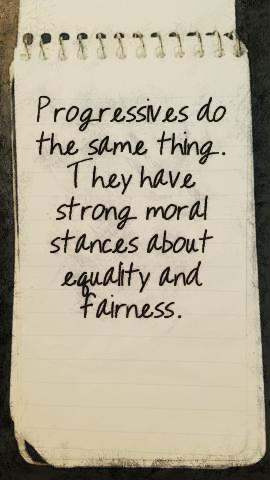 Progressives do
the same thing.
They have
strong moral
stances about
equality and
fairness.